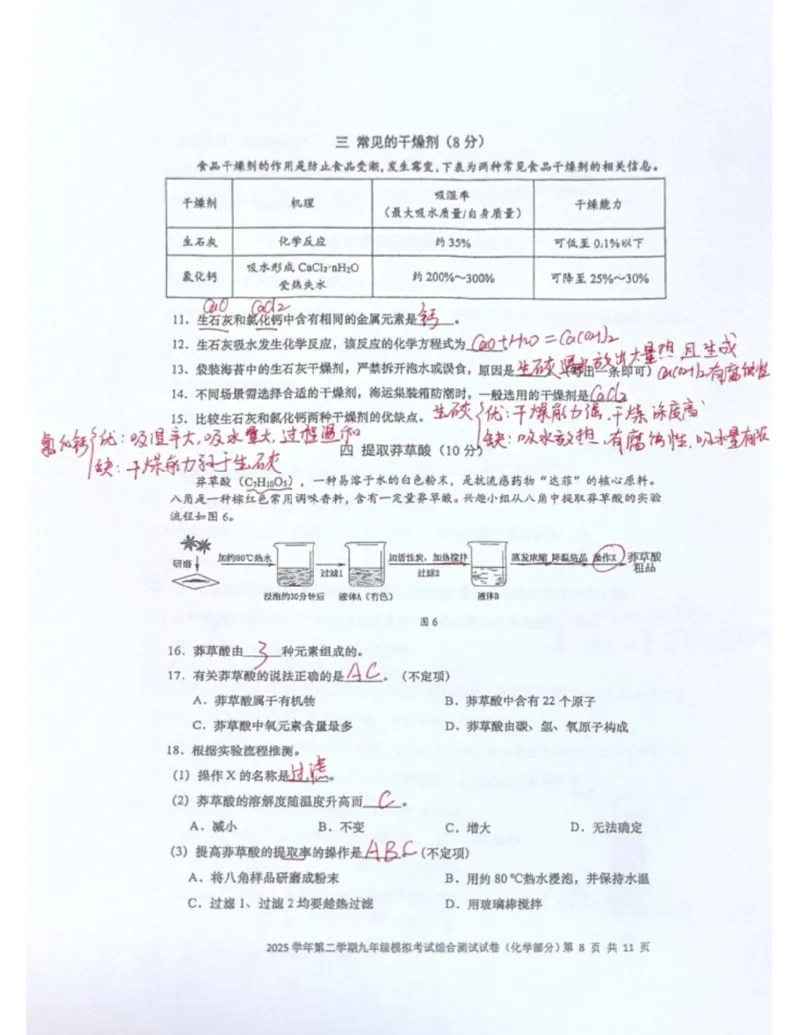 三 常见的干燥剂（8 分）
食品干燥剂的作用是防止食品受潮，发生霉变，下表为两种常见食品干燥剂的相关信息。
干燥剂 机理 吸湿率（最大吸水质量/自身质量） 干燥能力
生石灰 化学反应 约 35% 可低至 0.1%以下
氯化钙 吸水形成 CaCl₂·nH₂O 受热失水 约 200%～300% 可降至 25%～30%
CaO CaCl₂
11．生石灰和氯化钙中含有相同的金属元素是钙。
12．生石灰吸水发生化学反应，该反应的化学方程式为 CaO+H₂O=Ca(OH)₂
13．袋装海苔中的生石灰干燥剂，严禁拆开泡水或误食，原因是生石灰遇水放出大量热且生成Ca(OH)₂有腐蚀性（写出一条即可）
14．不同场景需选择合适的干燥剂，海运集装箱防潮时，一般选用的干燥剂是CaCl₂
15．比较生石灰和氯化钙两种干燥剂的优缺点。
生石灰 优：干燥能力强，干燥深度高
缺：吸水放热，有腐蚀性，吸水量有限
氯化钙 优：吸湿率大，吸水量大，过程温和
缺：干燥能力弱于生石灰
四 提取莽草酸（10 分）
莽草酸（C₇H₁₀O₅），一种易溶于水的白色粉末，是抗流感药物“达菲”的核心原料。
八角是一种棕红色常用调味香料，含有一定量莽草酸。兴趣小组从八角中提取莽草酸的实验
流程如图 6。
研磨 加约80℃热水 浸泡约30分钟后 过滤1 液体A（有色） 加活性炭、加热搅拌 过滤2 液体B 蒸发浓缩 降温结晶 操作X 莽草酸粗品
图 6
16．莽草酸由 3 种元素组成的。
17．有关莽草酸的说法正确的是 AC 。（不定项）
A．莽草酸属于有机物 B．莽草酸中含有 22 个原子
C．莽草酸中氧元素含量最多 D．莽草酸由碳、氢、氧原子构成
18．根据实验流程推测。
（1）操作 X 的名称是过滤。
（2）莽草酸的溶解度随温度升高而 C 。
A．减小 B．不变 C．增大 D．无法确定
（3）提高莽草酸的提取率的操作是 ABC （不定项）
A．将八角样品研磨成粉末 B．用约 80 ℃热水浸泡，并保持水温
C．过滤 1、过滤 2 均要趁热过滤 D．用玻璃棒搅拌
2025 学年第二学期九年级模拟考试综合测试试卷（化学部分）第 8 页 共 11 页